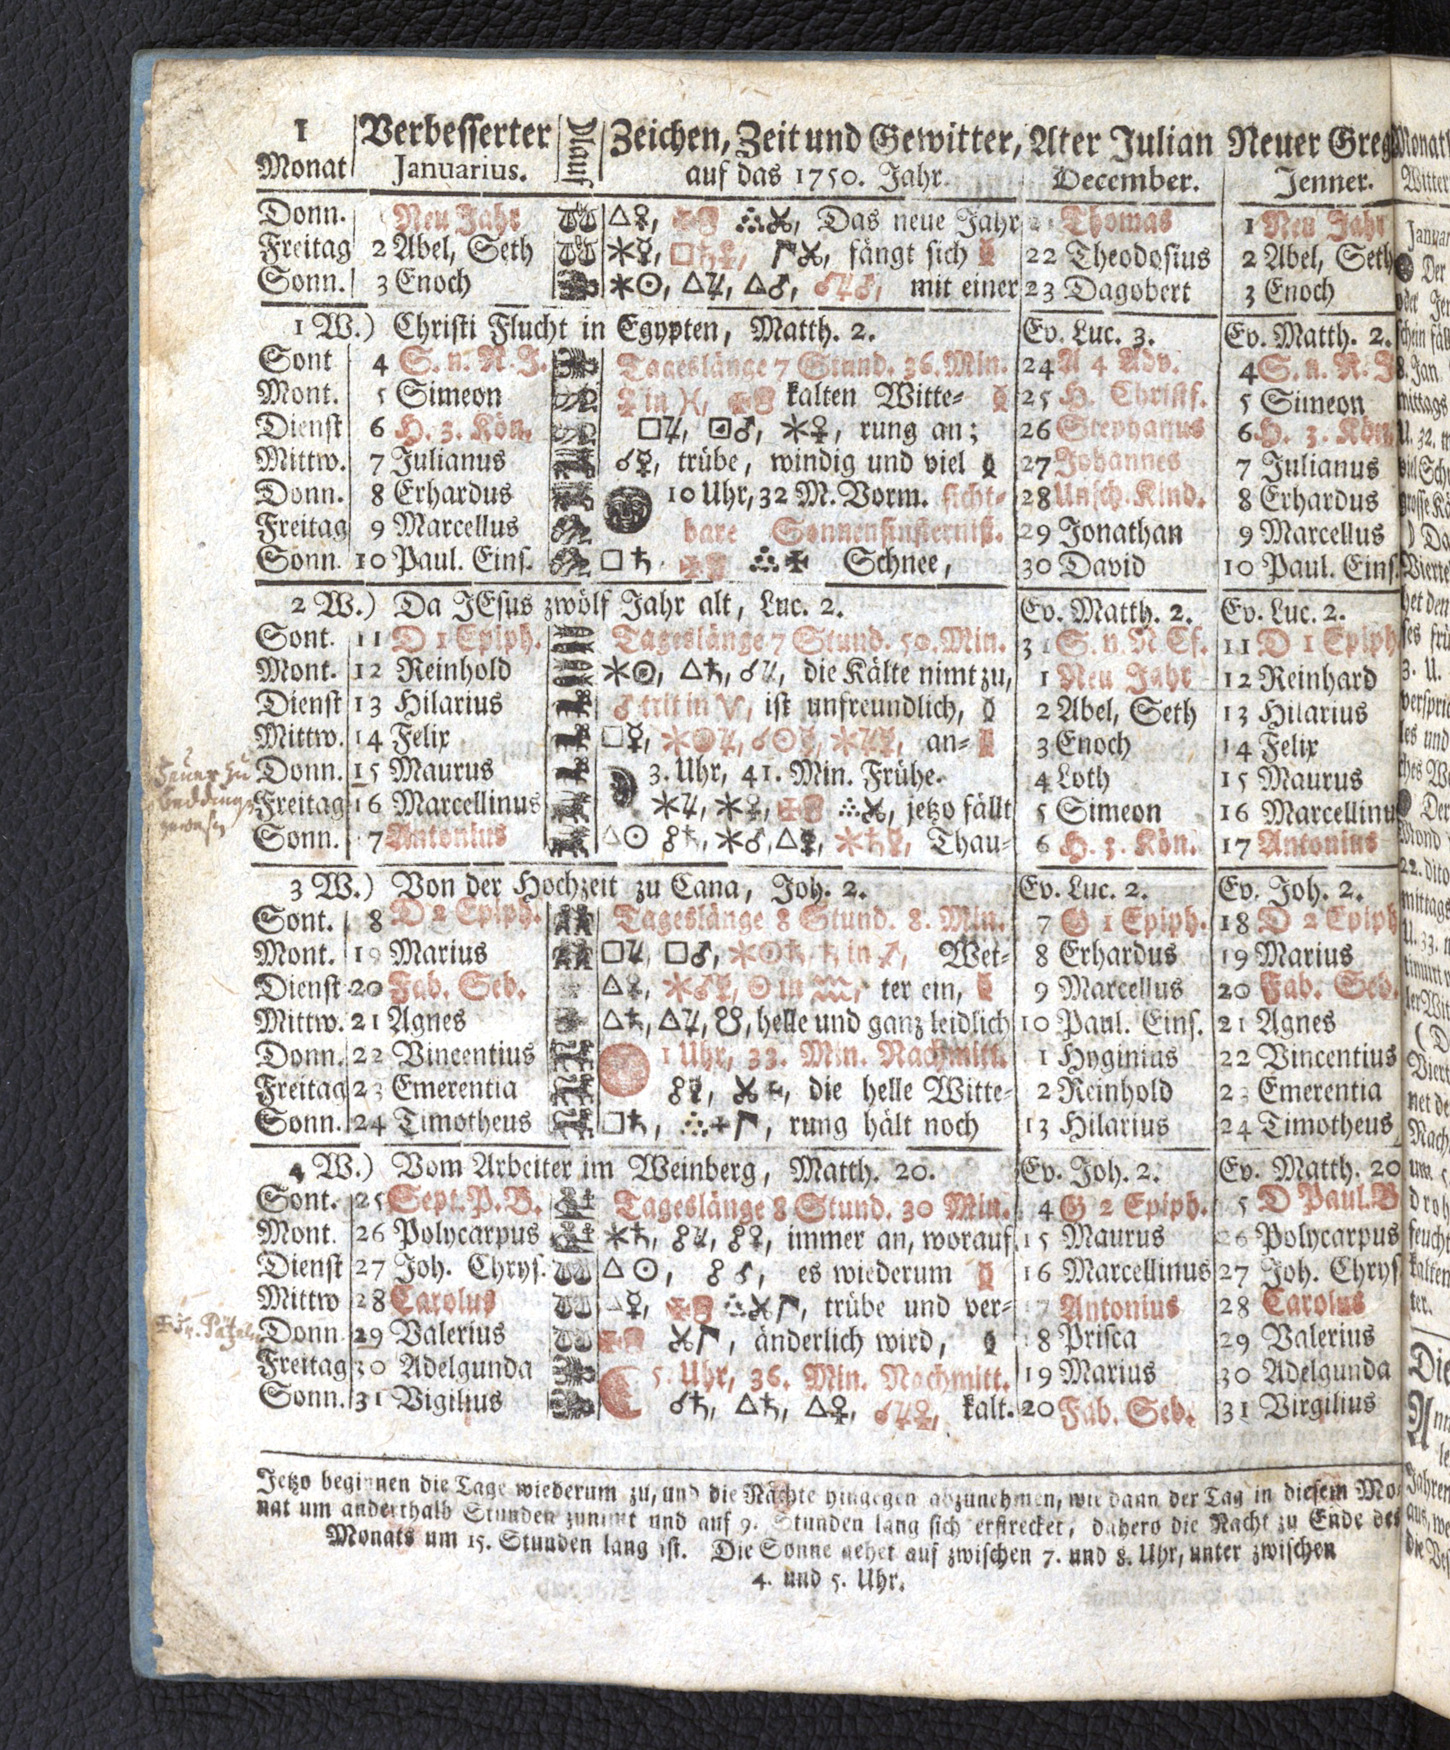 1 Verbesserter Zeichen, Zeit und Gewitter, Alter Julian Neuer Greg
Monat Januarius. auf das 1750. Jahr. December. Jenner.
Donn. Neu Jahr △♀, Das neue Jahr 21 Thomas 1 Neu Jahr
Freitag 2 Abel, Seth ⚹☿, □♄♀, fängt sich 22 Theodosius 2 Abel, Seth
Sonn. 3 Enoch ⚹☉, △♃, △♂, ☌♃♂, mit einer 23 Dagobert 3 Enoch
1 W.) Christi Flucht in Egypten, Matth. 2. Ev. Luc. 3. Ev. Matth. 2.
Sont 4 S. n. N. J. Tageslänge 7 Stund. 36. Min. 24 A 4 Adv. 4 S. n. N. J
Mont. 5 Simeon ☿ in ♓, kalten Witte- 25 H. Christf. 5 Simeon
Dienst 6 H. 3. Kön. □♃, ♂, ⚹♀, rung an; 26 Stephanus 6 H. 3. Kön.
Mittw. 7 Julianus ☌☿, trübe, windig und viel 27 Johannes 7 Julianus
Donn. 8 Erhardus 10 Uhr, 32 M. Vorm. sicht- 28 Unsch. Kind. 8 Erhardus
Freitag 9 Marcellus bare Sonnenfinsterniß. 29 Jonathan 9 Marcellus
Sonn. 10 Paul. Eins. □♄. Schnee, 30 David 10 Paul. Eins.
2 W.) Da JEsus zwölf Jahr alt, Luc. 2. Ev. Matth. 2. Ev. Luc. 2.
Sont. 11 D 1 Epiph. Tageslänge 7 Stund. 50. Min. 31 S. n. N Cf. 11 D 1 Epiph
Mont. 12 Reinhold ⚹☉, △♄, ☌♃, die Kälte nimt zu, 1 Neu Jahr 12 Reinhard
Dienst 13 Hilarius ♂ trit in ♈, ist unfreundlich, 2 Abel, Seth 13 Hilarius
Mittw. 14 Felix □☿, an- 3 Enoch 14 Felix
Donn. 15 Maurus 3. Uhr, 41. Min. Frühe. 4 Loth 15 Maurus
Freitag 16 Marcellinus ⚹♃, ⚹♀, jetzo fällt 5 Simeon 16 Marcellinu
Sonn. 7 Antonius △☉ ☍♄, ⚹♂, △☿, ⚹♄☿, Thau- 6 H. 3. Kön. 17 Antonius
3 W.) Von der Hochzeit zu Cana, Joh. 2. Ev. Luc. 2. Ev. Joh. 2.
Sont. 8 D 2 Epiph. Tageslänge 8 Stund. 8. Min. 7 G 1 Epiph. 18 D 2 Epiph
Mont. 19 Marius □♃, □♂, ⚹☉♄, in ♐, Wet- 8 Erhardus 19 Marius
Dienst 20 Fab. Seb. △♀, ⚹♂☿, ☉ in ♒, ter ein, 9 Marcellus 20 Fab. Seb.
Mittw. 21 Agnes △♄, △♃, ☋, helle und ganz leidlich 10 Paul. Eins. 21 Agnes
Donn. 22 Vincentius 1 Uhr, 33. Min. Nachmitt. 1 Hyginius 22 Vincentius
Freitag 23 Emerentia ☍☿, die helle Witte- 2 Reinhold 23 Emerentia
Sonn. 24 Timotheus □♄, rung hält noch 13 Hilarius 24 Timotheus
4 W.) Vom Arbeiter im Weinberg, Matth. 20. Ev. Joh. 2. Ev. Matth. 20
Sont. 25 Sept. P. B. Tageslänge 8 Stund. 30 Min. 4 G 2 Epiph. 5 D Paul. B
Mont. 26 Polycarpus ⚹♄, ☍♃, ☍♀, immer an, worauf 15 Maurus 26 Polycarpus
Dienst 27 Joh. Chrys. △☉, ☍♂, es wiederum 16 Marcellinus 27 Joh. Chrys
Mittw 28 Carolus △☿, trübe und ver- 7 Antonius 28 Carolus
Donn 29 Valerius änderlich wird, 8 Prisca 29 Valerius
Freitag 30 Adelgunda 5. Uhr, 36. Min. Nachmitt. 19 Marius 30 Adelgunda
Sonn. 31 Vigilius ☌♄, △♄, △♀, ☌♃♀, kalt. 20 Fab. Seb. 31 Virgilius
Jetzo beginnen die Tage wiederum zu, und die Nächte hingegen abzunehmen, wie dann der Tag in diesem Mo
nat um anderthalb Stunden zunimt und auf 9. Stunden lang sich erstrecket, dahero die Nacht zu Ende des
Monats um 15. Stunden lang ist. Die Sonne gehet auf zwischen 7. und 8. Uhr, unter zwischen
4. und 5. Uhr.